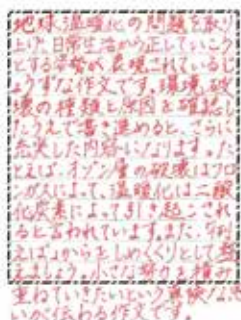 地球温暖化の問題を取り
上げ、日常生活から正していこう
とする姿勢が表現されているじ
ょうずな作文です。環境破
壊の種類と原因を確認し
たうえで書き進めると、さらに
充実した内容になります。た
とえば、オゾン層の破壊はフロ
ンガスによって、温暖化は二酸
化炭素によって引き起こされ
ると言われています。また、「例
えば」からをしめくくりとして整
えましょう。小さな努力を積み
重ねていきたいという真剣な思
いが伝わる作文です。